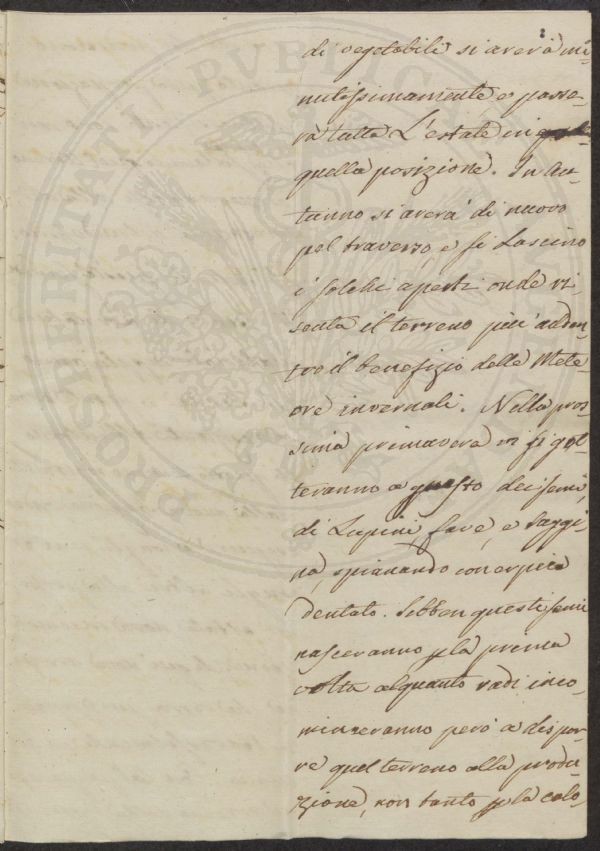 di vegetabili si arerà mi-
nutissimamente e passe-
rà tutta L'estate in
quella posizione. In Au-
tunno si arerà di nuovo
pel traverso, e si Lascino
i solchi aperti onde ri-
senta il terreno più adden-
tro il benefizio delle Mete-
ore invernali. Nella pros-
sima primavera vi si get-
teranno a guasto dei semi
di Lupini, fave, e saggi-
na, spianando con erpice
dentato. Sebben questi semi
nasceranno pla prima
volta alquanto radi inco-
mincieranno però a dispor-
re quel terreno alla produ-
zione, non tanto pla calo-
PROSPERITATI PVBLICAE